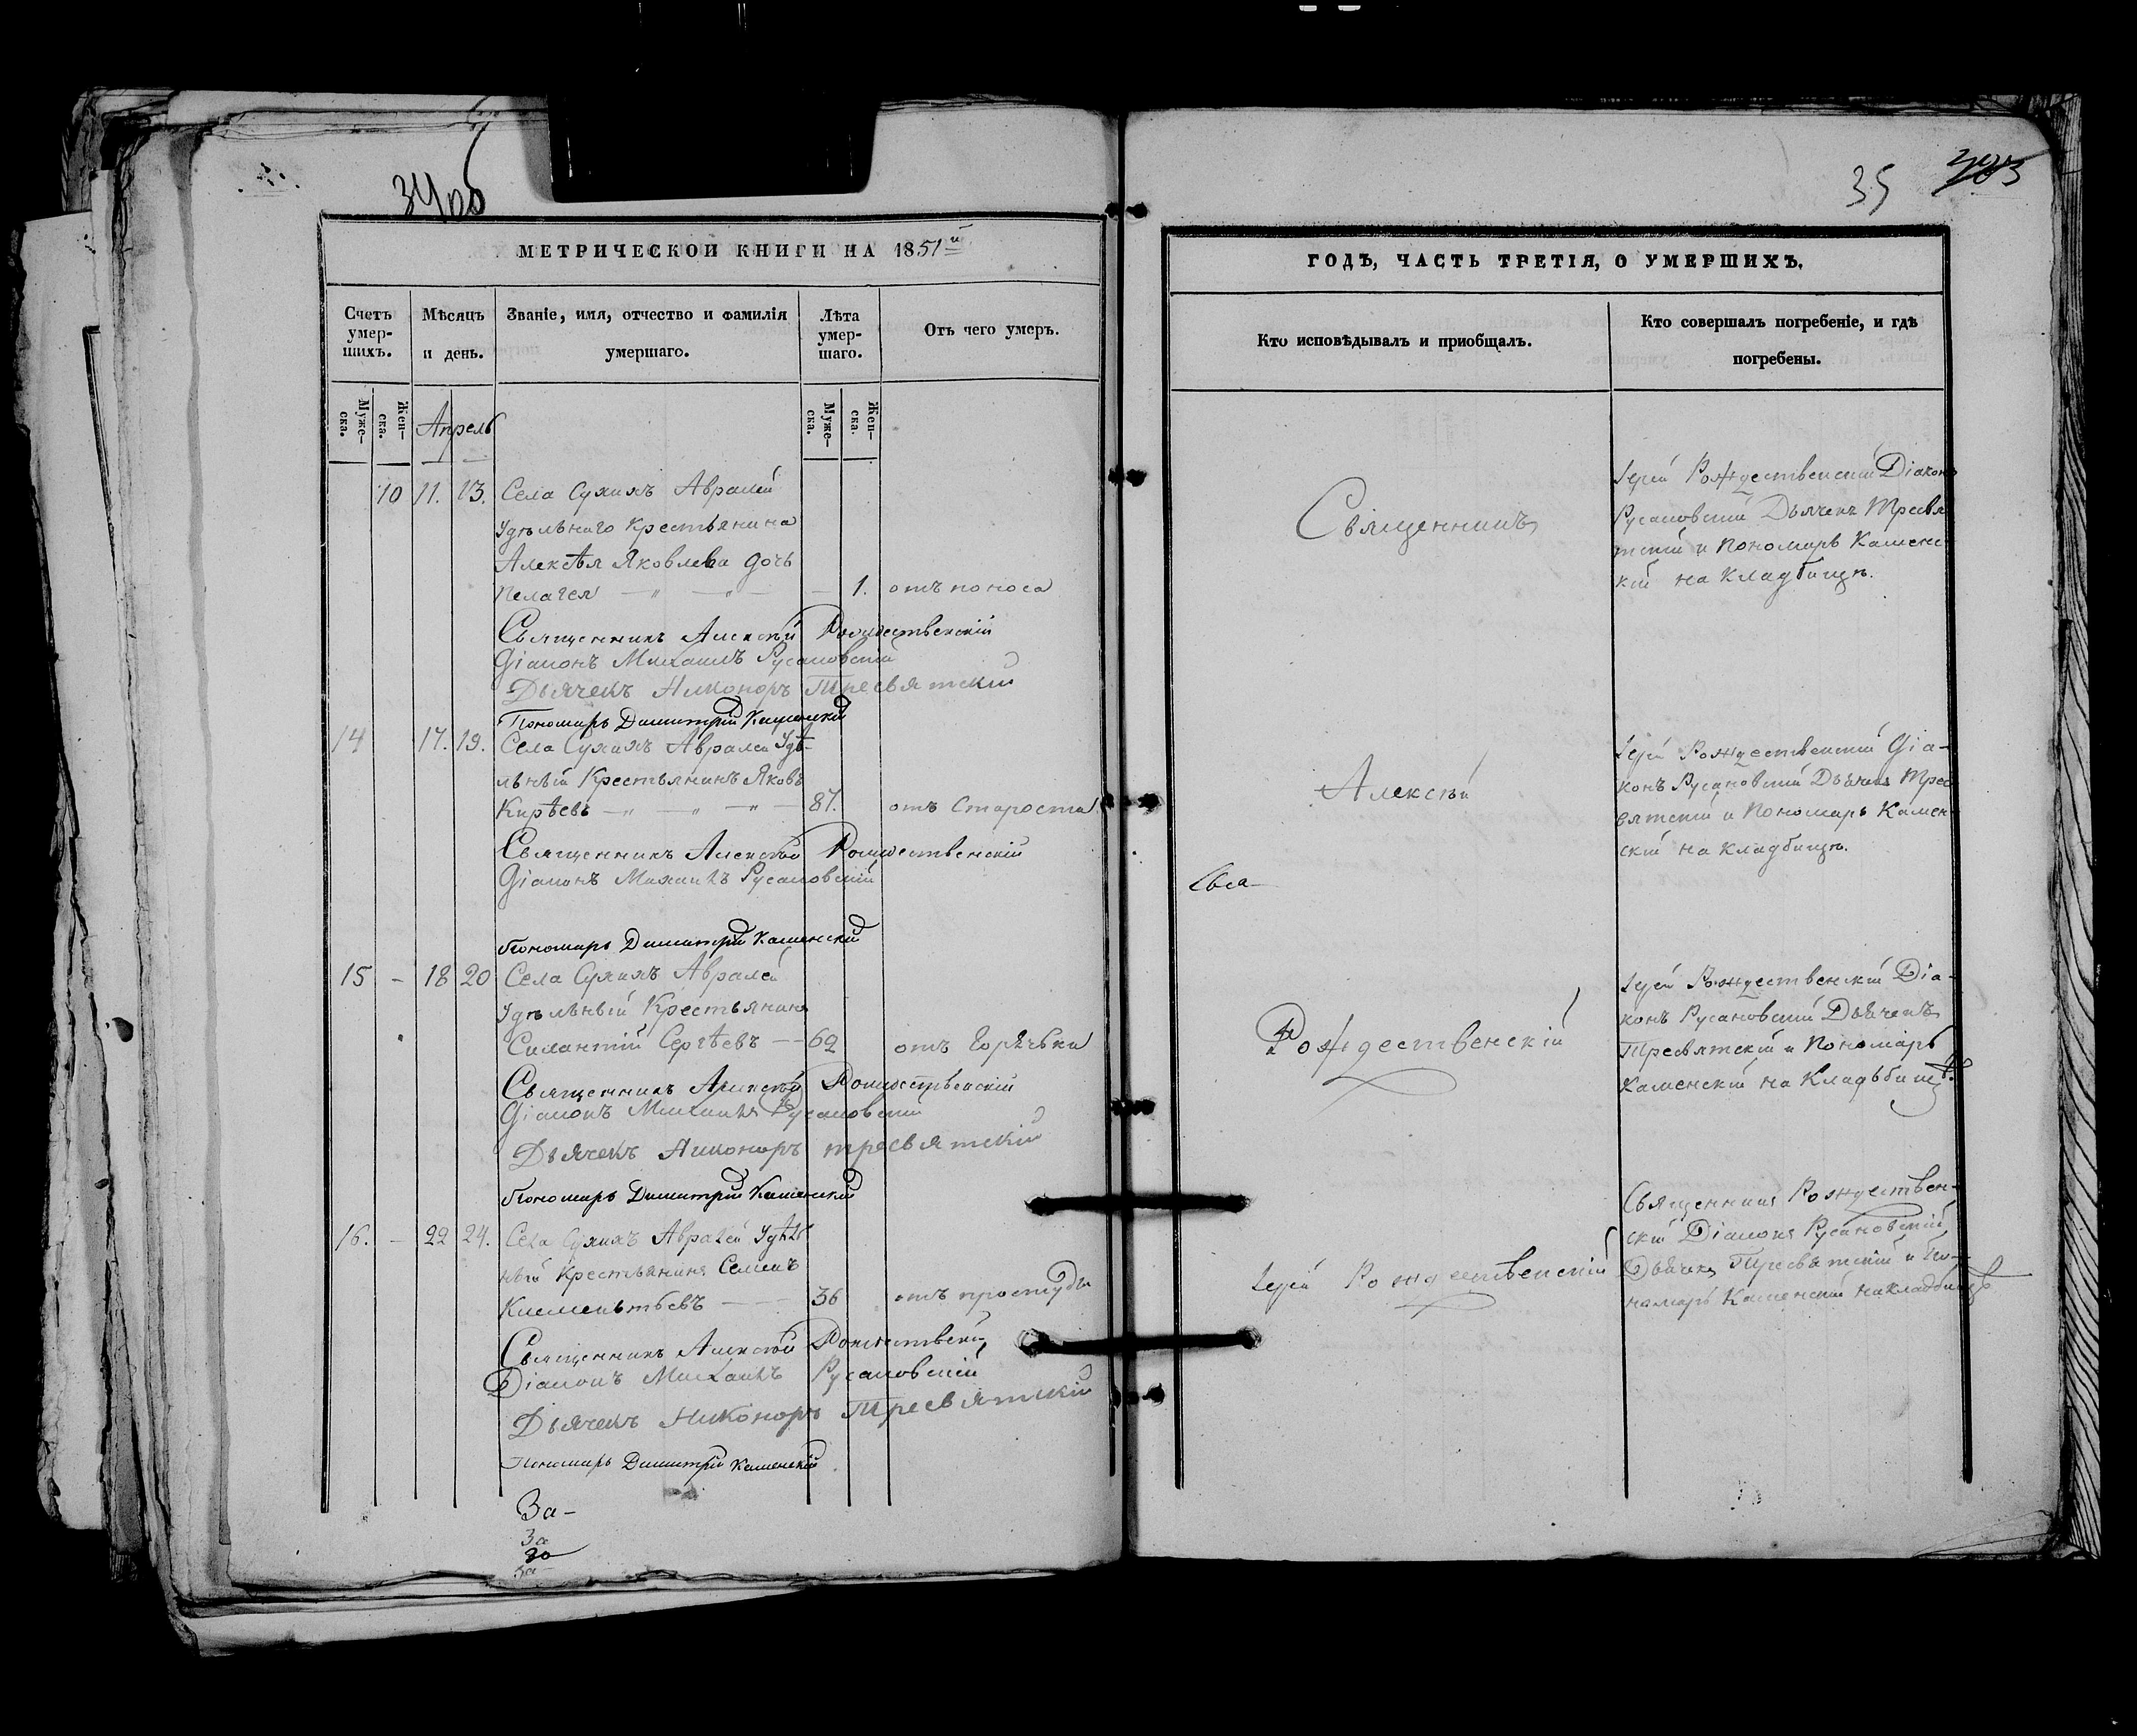 34об
МЕТРИЧЕСКОЙ КНИГИ НА 1851й
Счетъ умер-шихъ.
Мѣсяцъ и день.
Званіе, имя, отчество и фамилія умершаго.
Лѣта умер-шаго.
Отъ чего умеръ.
Муже-ска.
Жен-ска.
Апрель
Муже-ска.
Жен-ска.
10 11. 13. Села Сухихъ Авралей
Удѣльнаго Крестьянина
Алексѣя Яковлева дочь
Пелагея — „ — „ — — 1. отъ поноса
Священникъ Алексѣй Рождественскій
Діаконъ Михаилъ Русановскій
Дьячекъ Никоноръ Тресвятскій
Пономарь Димитрій Каменскій
14 17. 19. Села Сухихъ Авралей Удѣ-
льный Крестьянинъ Яковъ
Кирѣевъ — „ — „ — „ — 87. отъ Старости
Священникъ Алексѣй Рождественскій
Діаконъ Михаилъ Русановскій
Пономарь Димитрій Каменскій
15 – 18 20 Села Сухихъ Авралей
Удѣльный Крестьянинъ
Силантій Сергѣевъ — 62 отъ Горячьки
Священникъ Алексѣй Рождественскій
Діаконъ Михаилъ Русановскій
Дьячекъ Никоноръ Тресвятскій
Пономарь Димитрій Каменскій
16. – 22 24. Села Сухихъ Авралей Удѣль
ный Крестьянинъ Семенъ
Клементьевъ — 36 отъ простуды
Священникъ Алексѣй Рождественскій
Діаконъ Михаилъ Русановскій
Дьячекъ Никоноръ Тресвятскій
Пономарь Димитрій Каменскій
За-
За
За-
35
ГОДЪ, ЧАСТЬ ТРЕТІЯ, О УМЕРШИХЪ.
Кто исповѣдывалъ и приобщалъ.
Кто совершалъ погребеніе, и гдѣ погребены.
Священникъ
Іерей Рождественскій Діаконъ
Русановскій Дьячекъ Тресвя
тскій и Пономарь Каменс
кій на Кладбищѣ.
Алексѣй
Іерей Рождественскій Діа-
конъ Русановскій Дьячекъ Трес
вятскій и Пономарь Камен-
скій на Кладбищѣ.
Рождественскій
Іерей Рождественскій Діа-
конъ Русановскій Дьячекъ
Тресвятскій и Пономарь
Каменскій на Кладьбищѣ.
Іерей Рождественскій
Священникъ Рождествен-
скій Діаконъ Русановскій
Дьячекъ Тресвятскій и По-
номарь Каменскій на кладбищѣ